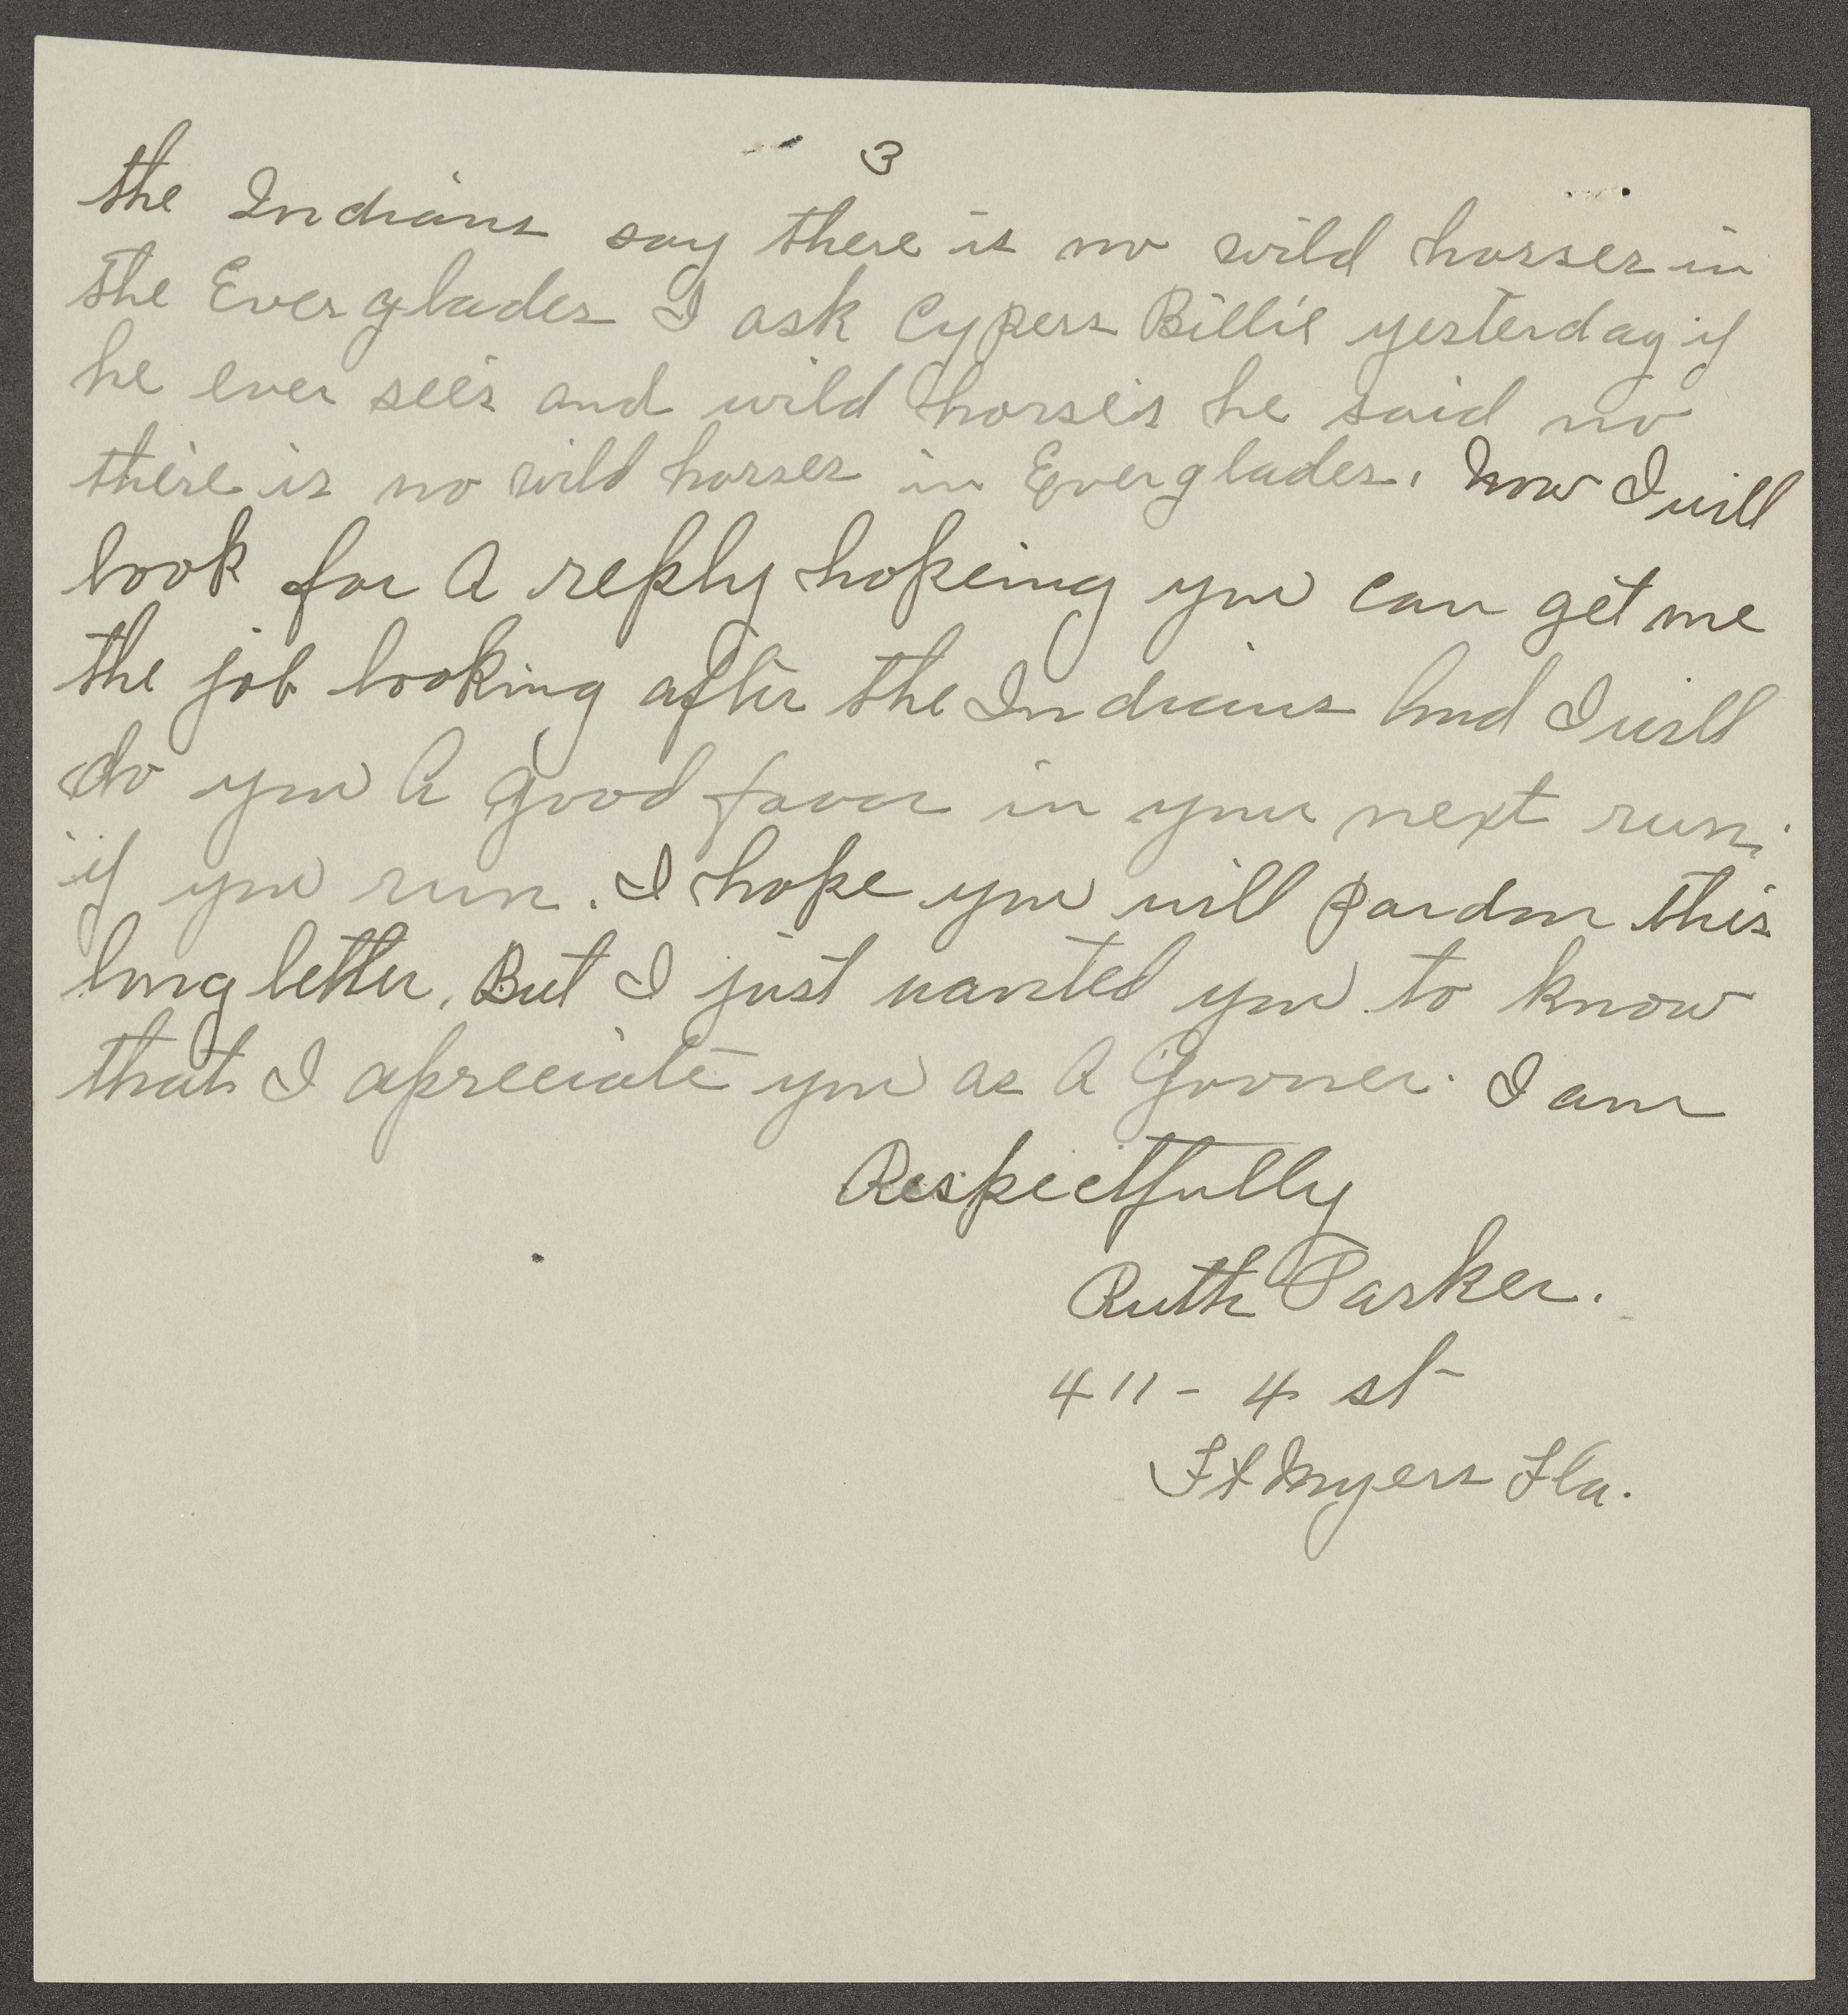 3
the Indians say there is no wild horses in
the Everglades I ask Cypers Billie yesterday if
he ever sees and wild horses he said no
there is no wild horses in Everglades. Now I will
look for A reply hopeing you can get me
the job looking after the Indians And I will
do you A good favor in your next run.
if you run. I hope you will pardon this
long letter. But I just wanted you to know
that I apreciate you as A Govner. I am
Respectfully
Ruth Parker.
411 - 4 st
Ft Myers Fla.